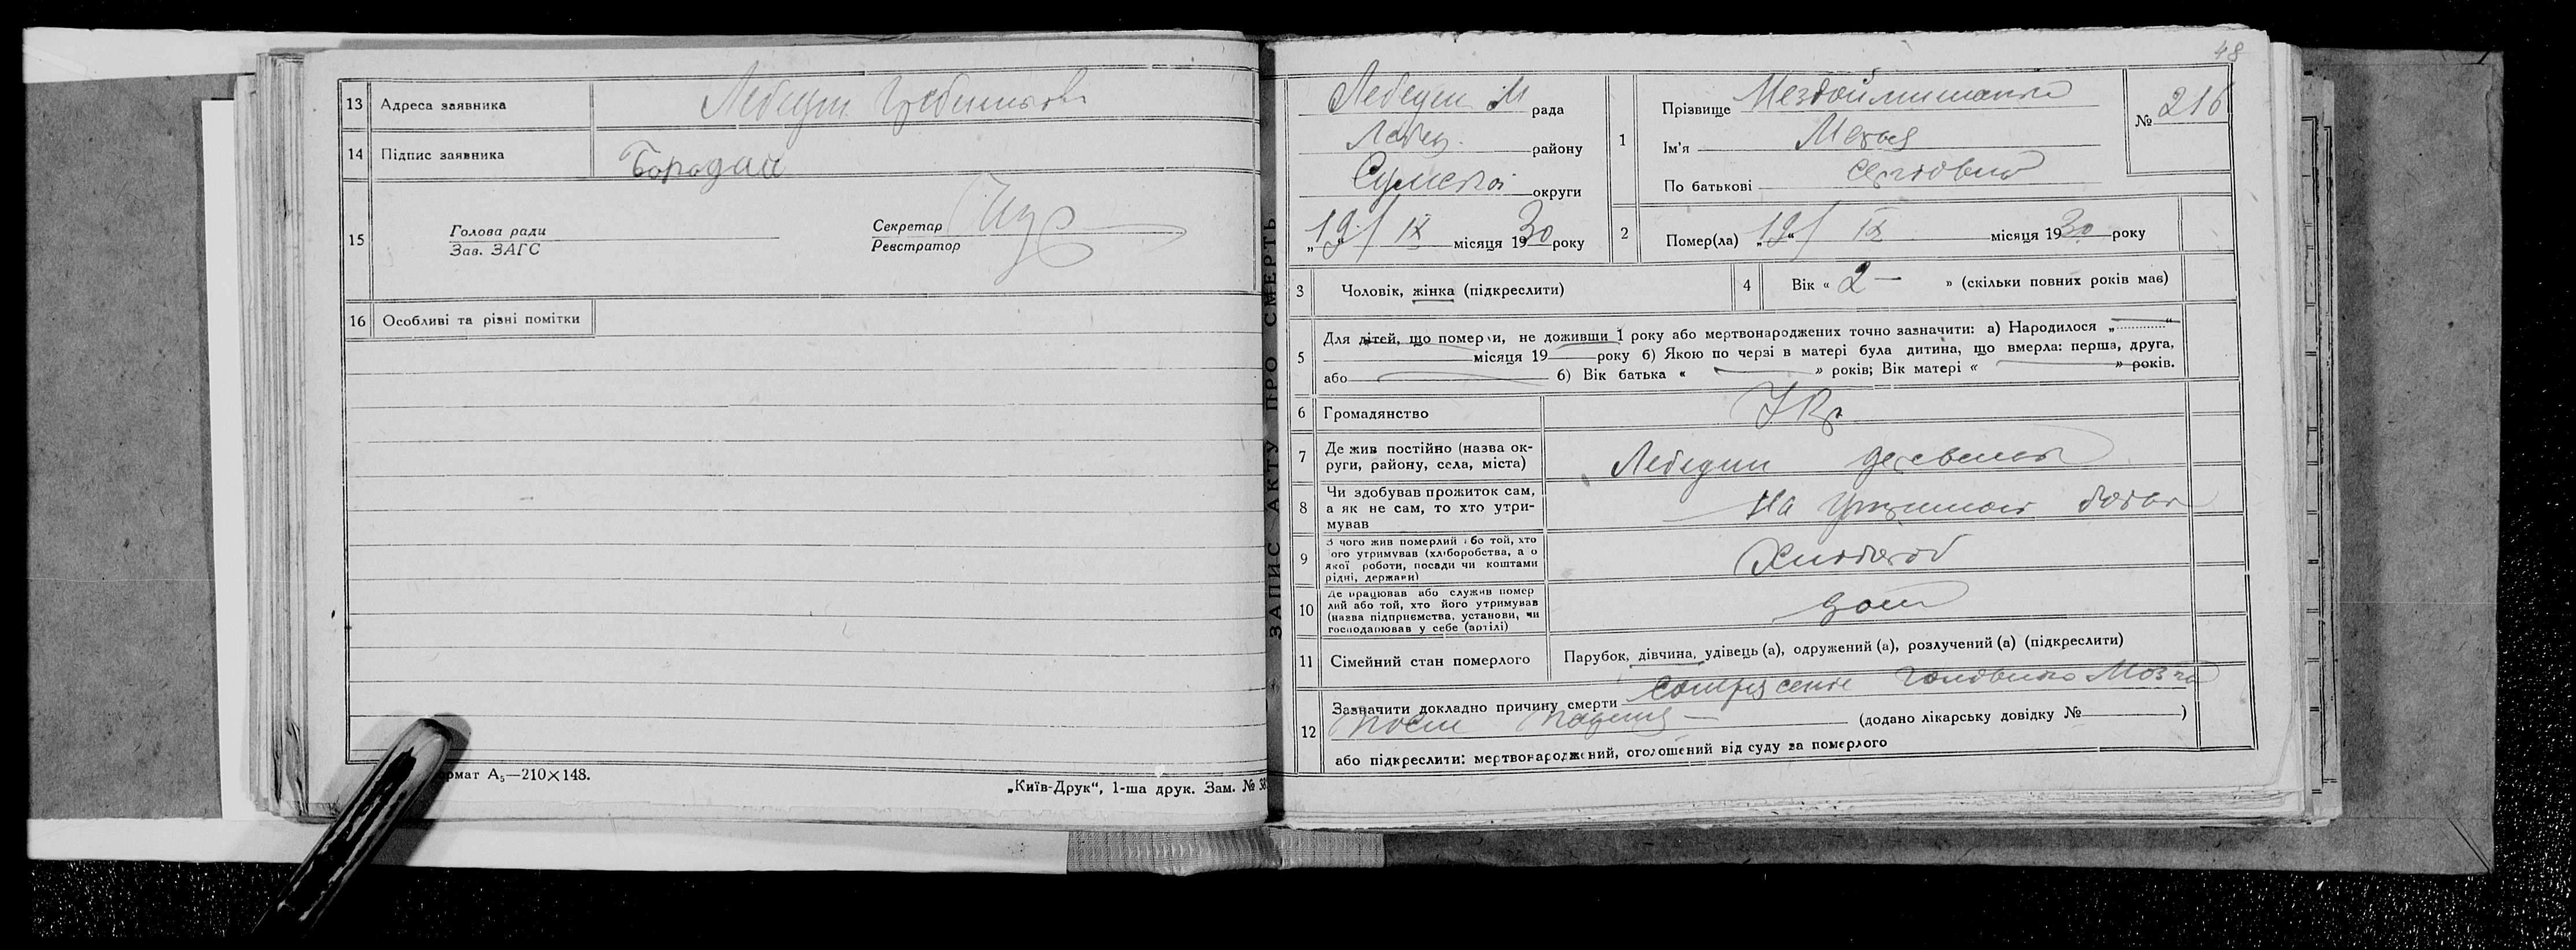 13 Адреса заявника Лебедин
14 Підпис заявника Бородай
15 Голова ради
Зав. ЗАГС
Секретар
Реєстратор
16 Особливі та різні помітки
А₅—210×148.
„Київ-Друк“, 1-ша друк. Зам. №
ЗАПИС АКТУ ПРО СМЕРТЬ
48
Лебедин М рада
Лебед. району
Сумської округи
„19“ IX місяця 1930 року
1 Прізвище
Ім'я Марія
По батькові Сергіовна
№ 216
2 Помер(ла) „19“ IX місяця 1930 року
3 Чоловік, жінка (підкреслити)
4 Вік « 2 — » (скільки повних років має)
5 Для дітей, що померли, не доживши 1 року або мертвонароджених точно зазначити: а) Народилося „ “
місяця 19 року б) Якою по черзі в матері була дитина, що вмерла: перша, друга,
або б) Вік батька « » років; Вік матері « » років.
6 Громадянство УКр
7 Де жив постійно (назва ок-
руги, району, села, міста) Лебедин
8 Чи здобував прожиток сам,
а як не сам, то хто утри-
мував На батьк
9 З чого жив померлий або той, хто
ого утримував (хліборобства, а о
якої роботи, посади чи коштами
рідні, держави) Хлібороб
10 Де працював або служив помер
лий або той, хто його утримував
(назва підприємства, установи, чи
господарював у себе (артілі) дома
11 Сімейний стан померлого Парубок, дівчина, удівець (а), одружений (а), розлучений (а) (підкреслити)
12 Зазначити докладно причину смерти сотрясение головного Мозга
после падения — (додано лікарську довідку № )
або підкреслити: мертвонароджений, оголошений від суду за померлого